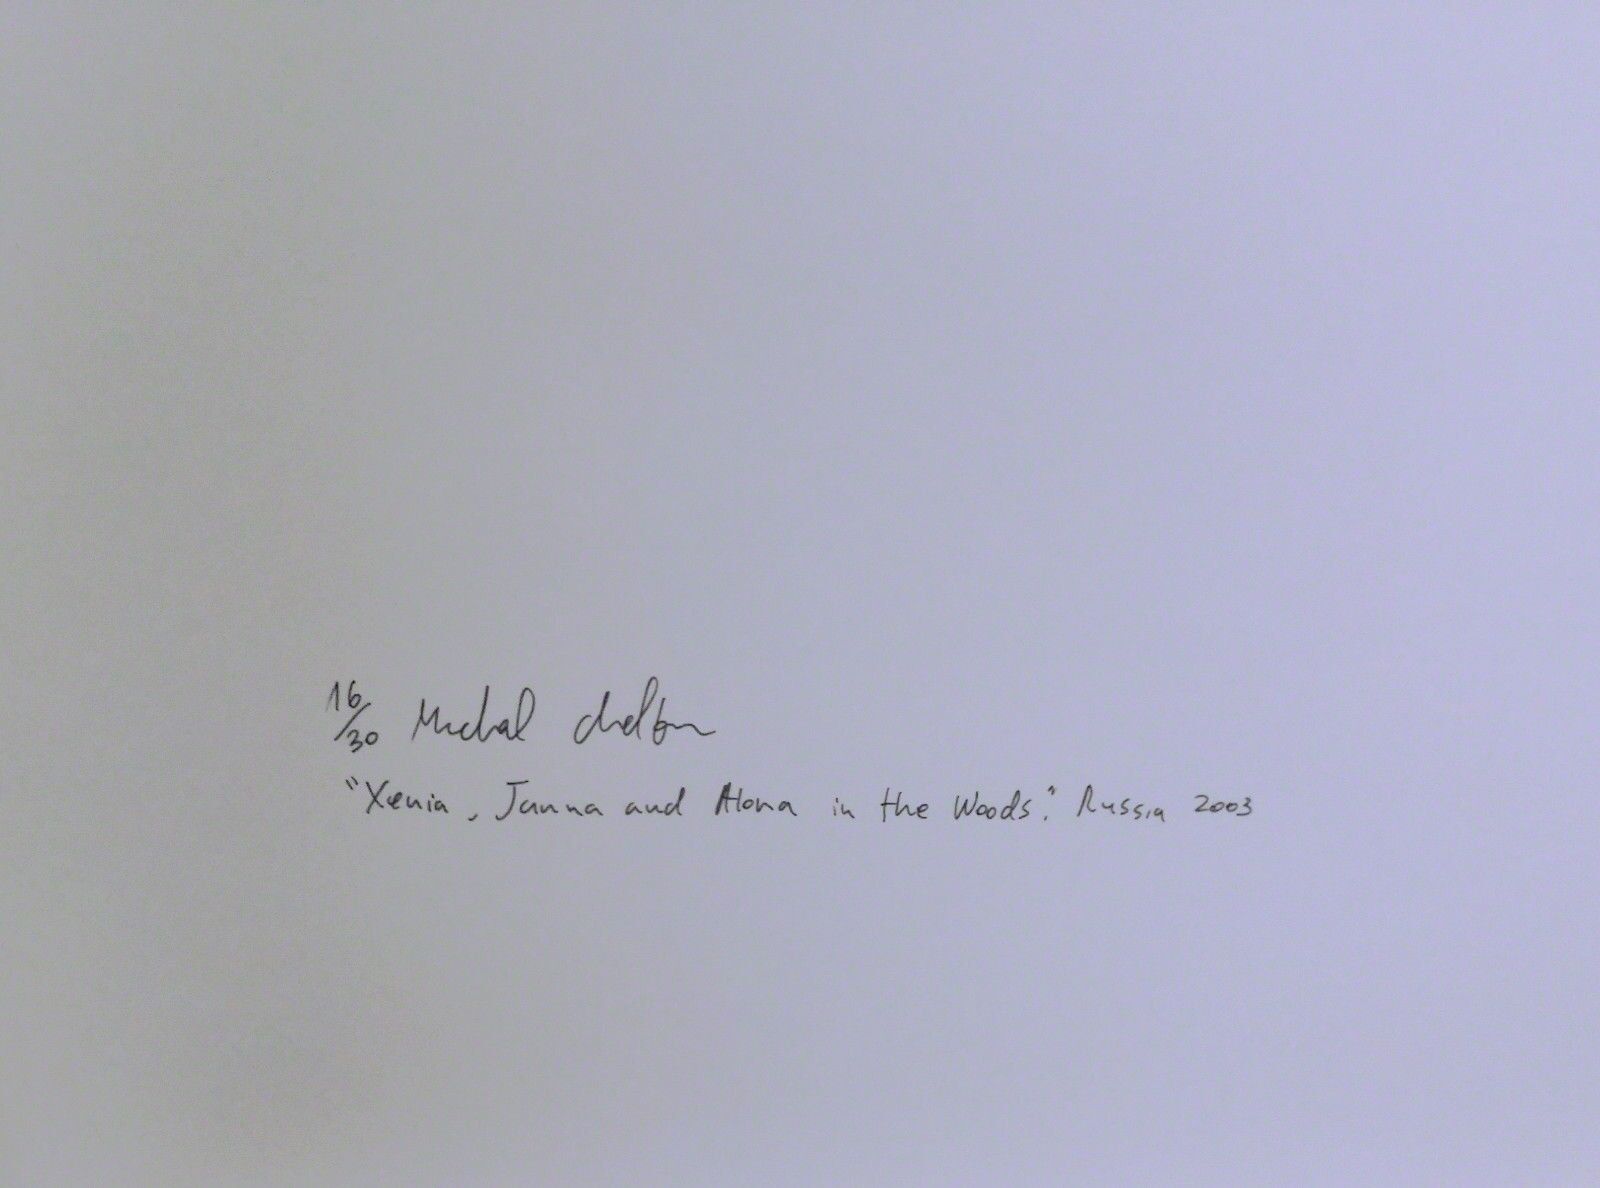 16/30 Michal Chelbin
"Xenia, Janna and Alona in the Woods." Russia 2003